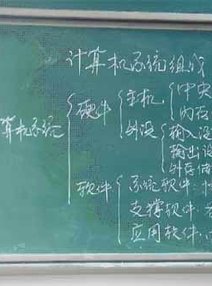 计算机系统组成
中央
主机
硬件 内存
输入设
外设 输出设
算机系统 外存储
系统软件：
软件 支撑软件：
应用软件：